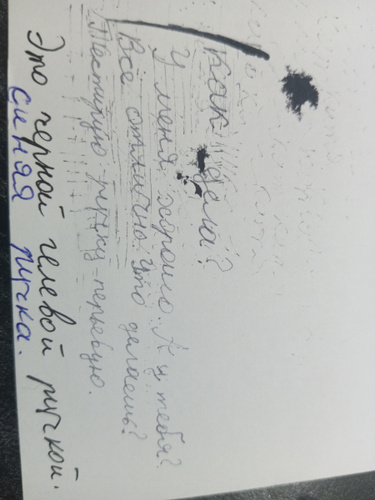 Как дела?
У меня хорошо. А у тебя?
Всё отлично. Что делаешь?
Тестирую ручку перьевую.
Это черной гелевой ручкой.
синяя ручка.